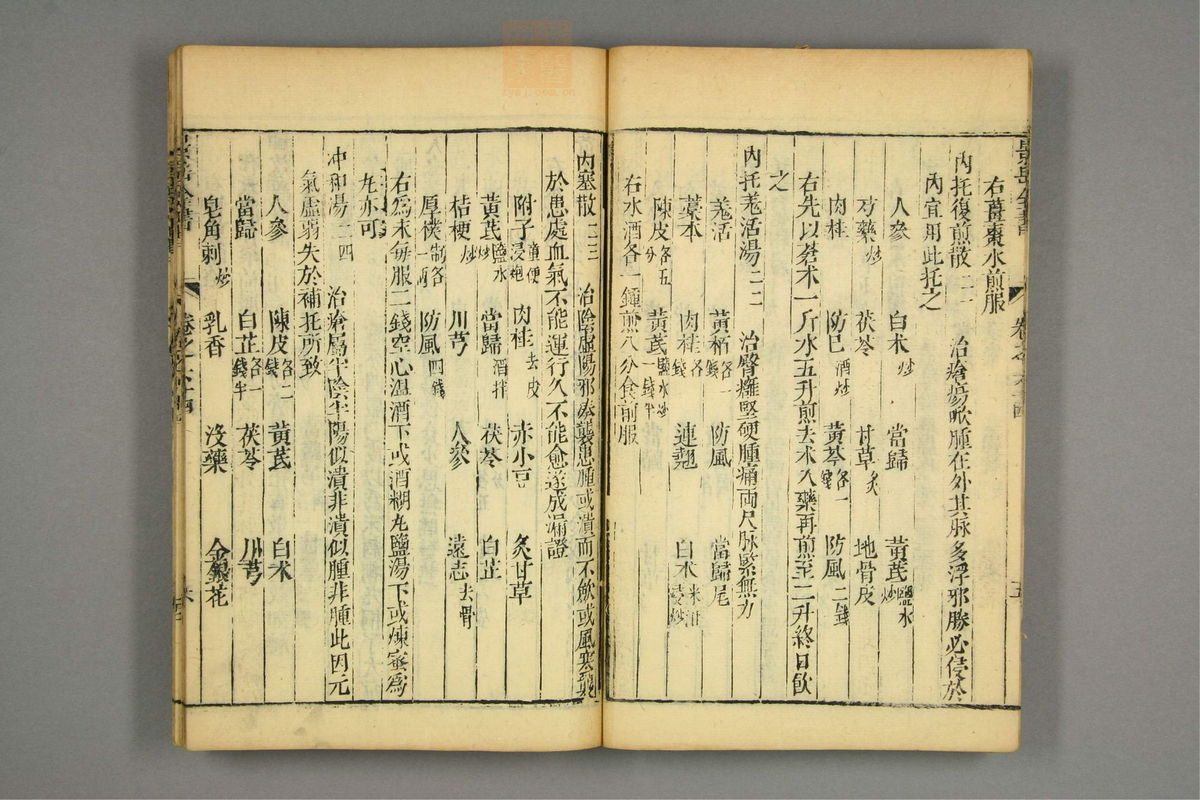 右薑棗水煎服
內托復煎散二一　治瘡瘍焮腫在外其脉多浮邪勝必侵於
內宜用此托之
人參　白朮炒　當歸　黃芪鹽水炒
芍藥炒　茯苓　甘草炙　地骨皮
肉桂　防已酒炒　黃芩各一錢　防風二錢
右先以蒼朮一斤水五升煎去朮入藥再煎至二升終日飲
之
內托羗活湯二二　治臀癰堅硬腫痛兩尺脉緊無力
羗活　黃栢各一錢　防風　當歸尾
藁本　肉桂各錢　連翹　白朮米泔浸炒
陳皮各五分　黃芪鹽水炒一錢半
右水酒各一鍾煎八分食前服
內塞散二三　治陰虛陽邪奏襲患腫或潰而不斂或風寒襲
於患處血氣不能運行久不能愈遂成漏證
附子童便浸炮　肉桂去皮　赤小豆　炙甘草
黃芪鹽水炒　當歸酒拌　茯苓　白芷
桔梗炒　川芎　人參　遠志去骨
厚樸制各一兩　防風四錢
右為末每服二錢空心溫酒下或酒糊丸鹽湯下或煉蜜為
丸亦可
冲和湯二四　治瘡屬半陰半陽似潰非潰似腫非腫此因元
氣虛弱失於補托所致
人參　陳皮各二錢　黃芪　白朮
當歸　白芷各一錢半　茯苓　川芎
皂角刺炒　乳香　沒藥　金銀花